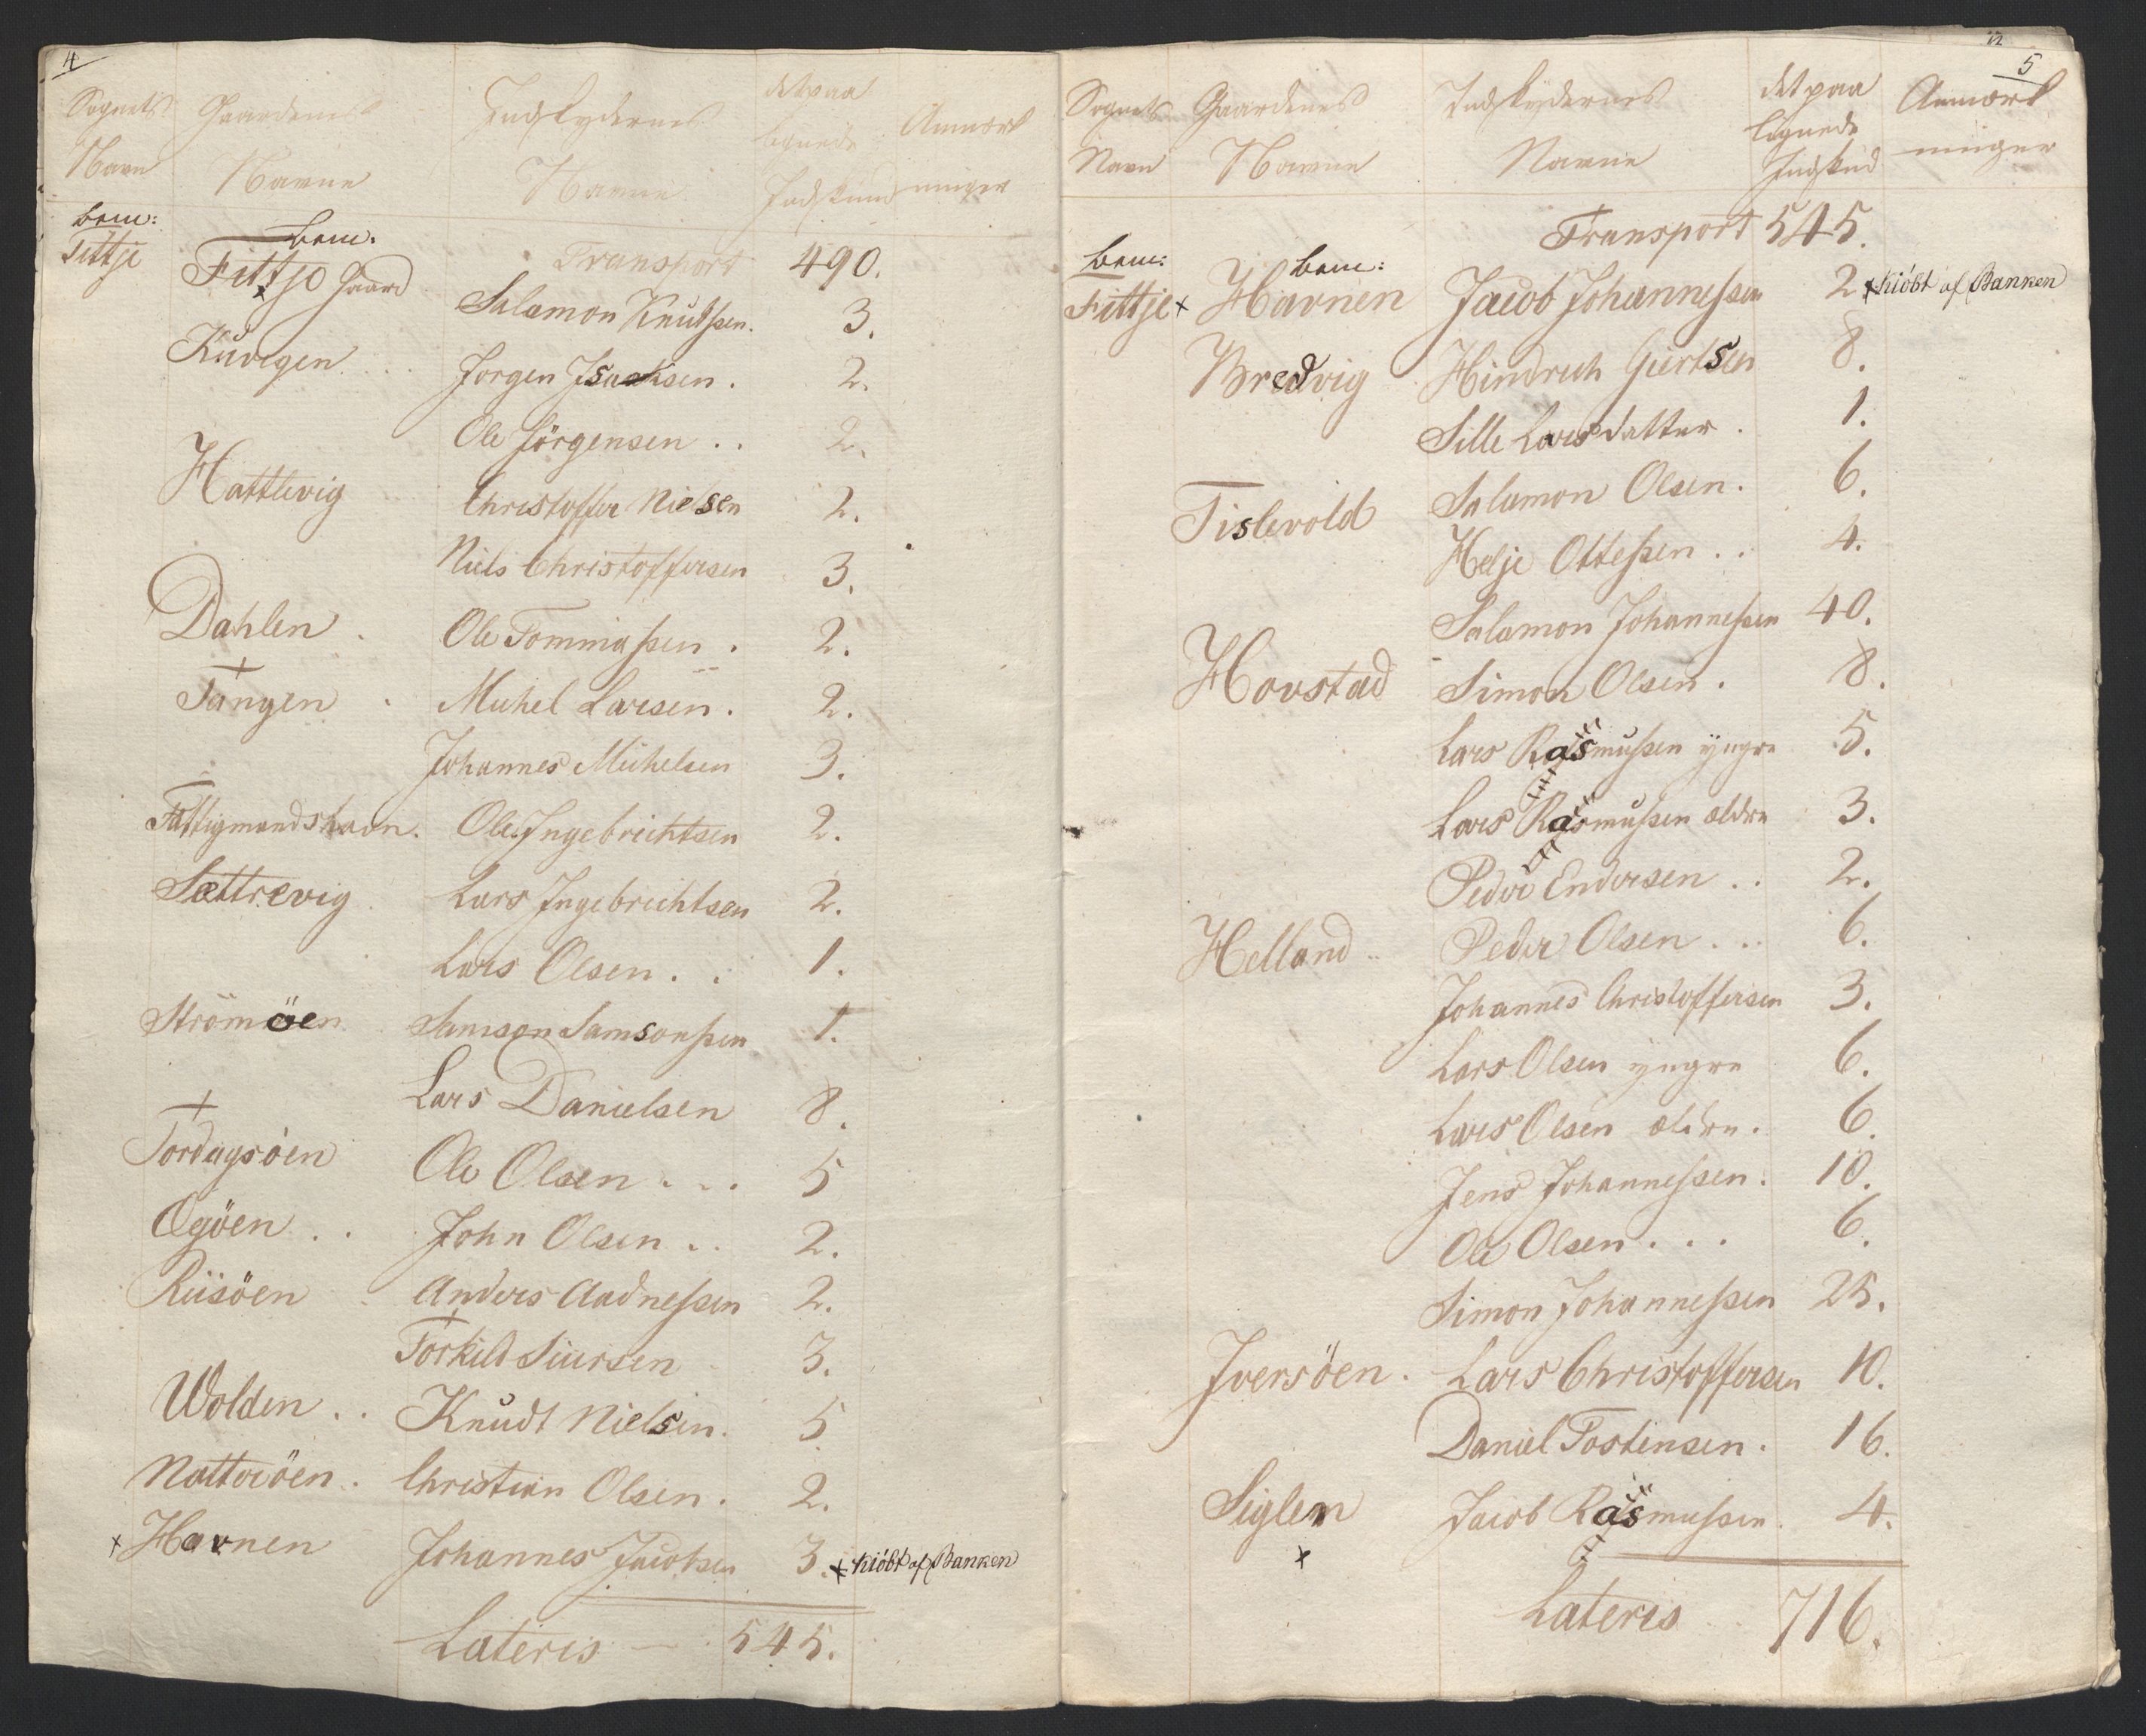 4
Sognets Gaardenes Indskydernes det paa Anmærk
Navn Navne Navne lignede ninger
Indskud
bem: bem.
Fittje Fittje Gaard Transport 490.
Salamon Knudssen. 3.
Kuvigen Jorgen Isacksen. 2.
Ole Jörgensen .. 2.
Hattlevig Christoffer Nielsen 2.
Niels Christoffersen 3.
Dahlen. Ole Tommassen. 2.
Tangen. Michel Larsen. 2.
Johannes Michelsen 3.
Fattigmandshavn. Ole Ingebrichtsen 2.
Sættrevig Lars Ingebrichtsen 2.
Lars Olsen. . 1.
Strömöen Samson Samsonssen 1.
Lars Danielsen 8.
Tordagsöen Ole Olsen... 5
Ogöen.. John Olsen.. 2.
Riisöen Anders Aadnessen 2.
Torkild Siursen 3.
Wolden.. Knudt Nielsen. 5
Nattøröen. Christian Olsen. 2.
x Havnen Johannes Jacobsen 3. x kiöbt af Banken
Lateris 545.
12
5
Sognets Gaardenes Indskydernes det paa Anmærk
Navn Navne Navne lignede ninger
Indskud
Transport 545.
bem: bem:
Fittje x Havnen Jacob Johannessen 2 x kiöbt af Banken
Bredvig Hindrich Giertsen 8.
Sille Larsdatter. 1.
Tislevold Salamon Olsen. 6.
Helje Ottessen.. 4.
Salamon Johannessen 40.
Hovstad Simon Olsen. 8.
Lars Rasmussen yngre 5.
Lars Rasmussen ældre 3.
Peder Endersen.. 2.
Helland.. Peder Olsen... 6.
Johannes Christoffersen 3.
Lars Olsen yngre 6.
Lars Olsen ældre. 6.
Jens Johannessen. 10.
Ole Olsen... 6.
Simon Johannessen 25.
Iversöen. Lars Christoffersen 10.
Daniel Tostensen. 16.
Siglen Jacob Rasmussen. 4.
x
Lateris 716.